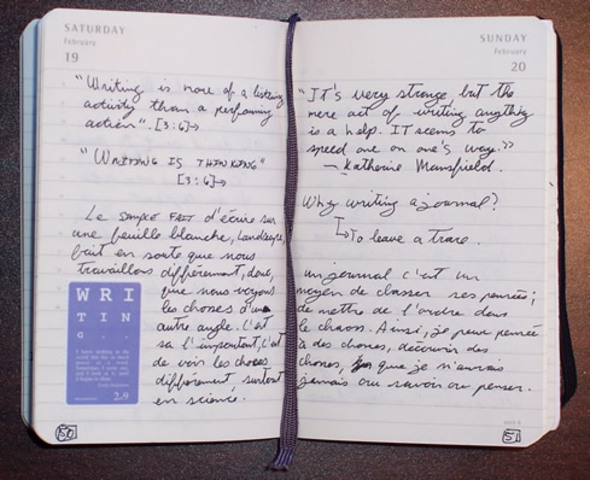 SATURDAY
February
19
"Writing is more of a listening
activity than a performing
action". [3:6]→
"WRITING IS THINKING"
[3:6]→
Le SIMPLE FAIT d'écrire sur
une feuille blanche, Landscape,
fait en soute que nous
travaillons différemment, donc,
que nous voyons
les choses d'un
autre angle. C'est
sa l'important, c'est
de voir les choses
différemment, surtout
en science.
WRI
TIN
G.
2.9
50
SUNDAY
February
20
"It's very strange, but the
mere act of writing anything
is a help. IT seems to
speed one on one's way."
— Katherine Mansfield.
Why writing a journal?
↳To leave a trace.
un journal c'est un
moyen de classer ses pensées;
de mettre de l'ordre dans
le chaos. Ainsi, je peux penser
à des choses, découvrir des
choses, que je n'aurais
jamais ou savoir ou penser.
51